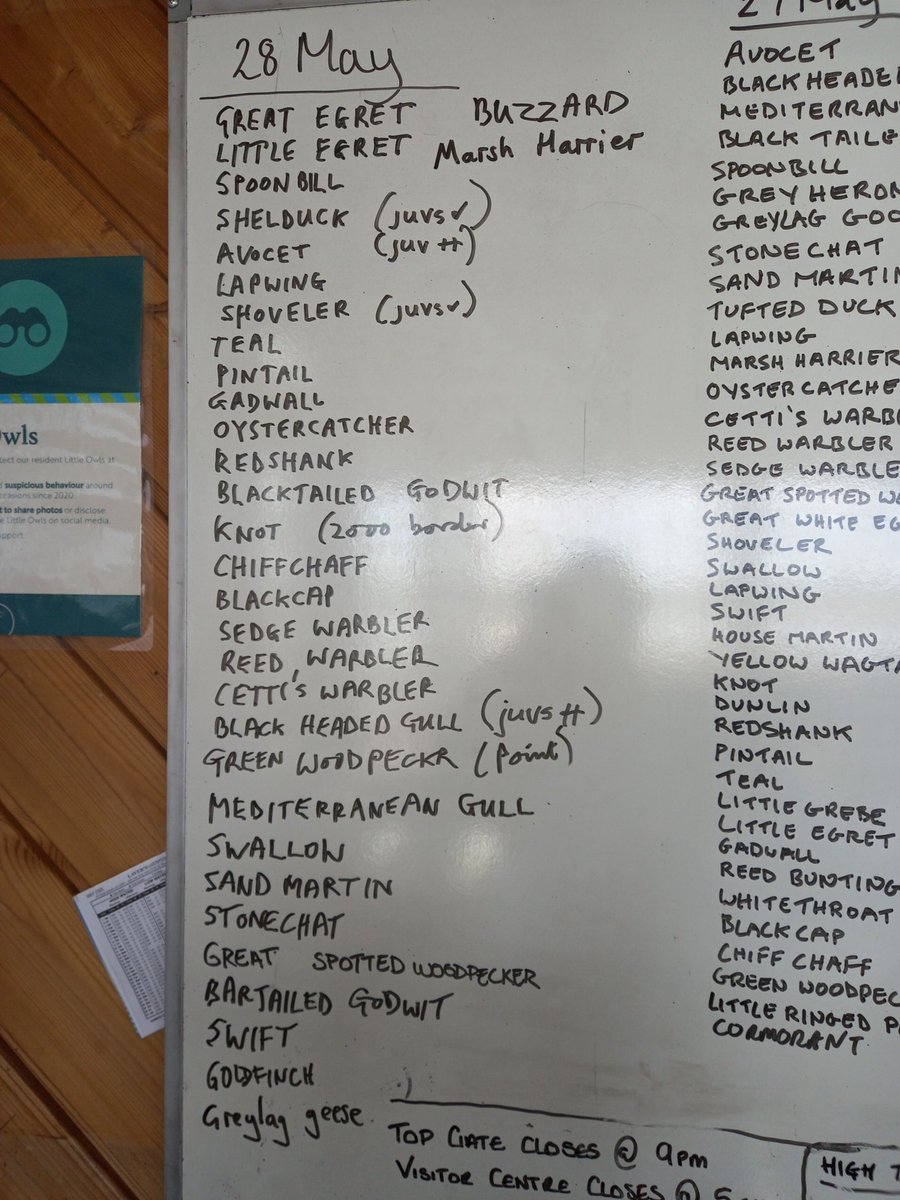 28 May
GREAT EGRET BUZZARD
LITTLE EGRET Marsh Harrier
SPOONBILL
SHELDUCK (juvs ✓)
AVOCET (juv #)
LAPWING
SHOVELER (juvs ✓)
TEAL
PINTAIL
GADWALL
OYSTERCATCHER
REDSHANK
BLACKTAILED GODWIT
KNOT (2000 border)
CHIFFCHAFF
BLACKCAP
SEDGE WARBLER
REED WARBLER
CETTI'S WARBLER
BLACK HEADED GULL (juvs #)
GREEN WOODPECKR (Point)
MEDITERRANEAN GULL
SWALLOW
SAND MARTIN
STONECHAT
GREAT SPOTTED WOODPECKER
BARTAILED GODWIT
SWIFT
GOLDFINCH
Greylag geese
27 May
AVOCET
BLACKHEADE
MEDITERRAN
BLACK TAILE
SPOONBILL
GREY HERON
GREYLAG GOO
STONECHAT
SAND MARTIN
TUFTED DUCK
LAPWING
MARSH HARRIER
OYSTERCATCHE
CETTI'S WARBL
REED WARBLER
SEDGE WARBLE
GREAT SPOTTED WO
GREAT WHITE EG
SHOVELER
SWALLOW
LAPWING
SWIFT
HOUSE MARTIN
YELLOW WAGTA
KNOT
DUNLIN
REDSHANK
PINTAIL
TEAL
LITTLE GREBE
LITTLE EGRET
GADWALL
REED BUNTING
WHITETHROAT
BLACKCAP
CHIFF CHAFF
GREEN WOODPEC
LITTLE RINGED P
CORMORANT
TOP GATE CLOSES @ 9pm
VISITOR CENTRE CLOSES @ 5
HIGH T
Owls
tect our resident Little Owls at
suspicious behaviour around
ccasions since 2020
t to share photos or disclose
e Little Owls on social media.
upport.